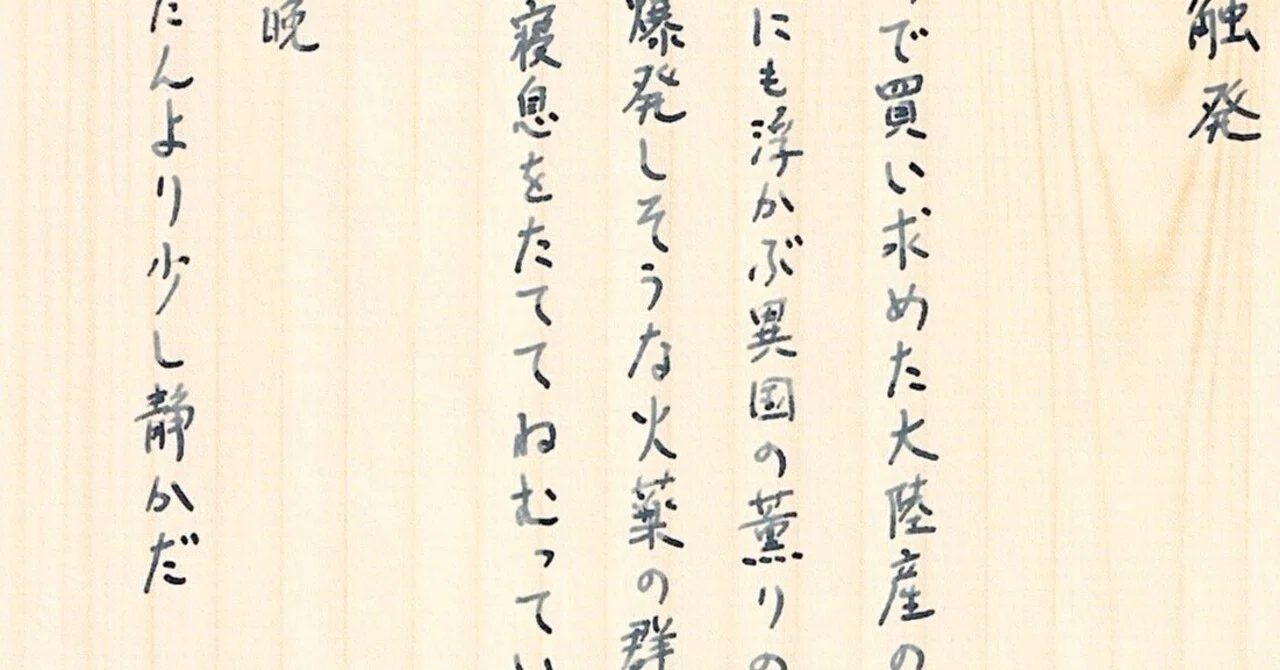 触発
で買い求めた大陸産の
にも浮かぶ異国の薫りの
爆発しそうな火薬の群
寝息をたててねむってい
晩
たんより少し静かだ